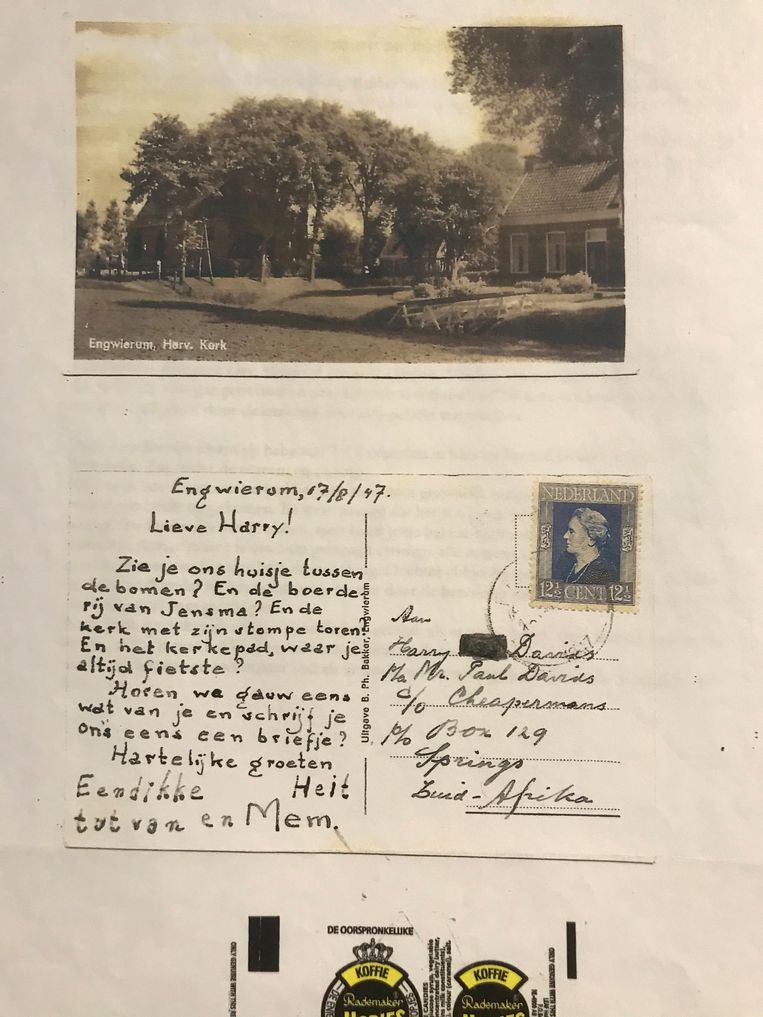 Engwierum, Herv. Kerk
Engwierum, 17/8/47.
Lieve Harry!
Zie je ons huisje tussen
de bomen? En de boerde-
rij van Jensma? En de
kerk met zijn stompe toren?
En het kerkepad, waar je
altijd fietste?
Horen we gauw eens
wat van je en schrijf je
ons eens een briefje?
Hartelijke groeten
Eendikke Heit
tut van en Mem.
Uitgave B. Ph. Bakker, Engwierum
NEDERLAND
12½ CENT 12½
Aan
Harry Davids
p/a Mr. Paul Davids
c/o Cheapermans
p/o Box 129
Springs
Zuid-Afrika
DE OORSPRONKELIJKE
KOFFIE
Rademaker
HOPJES
KOFFIE
Rademaker
HOPJES